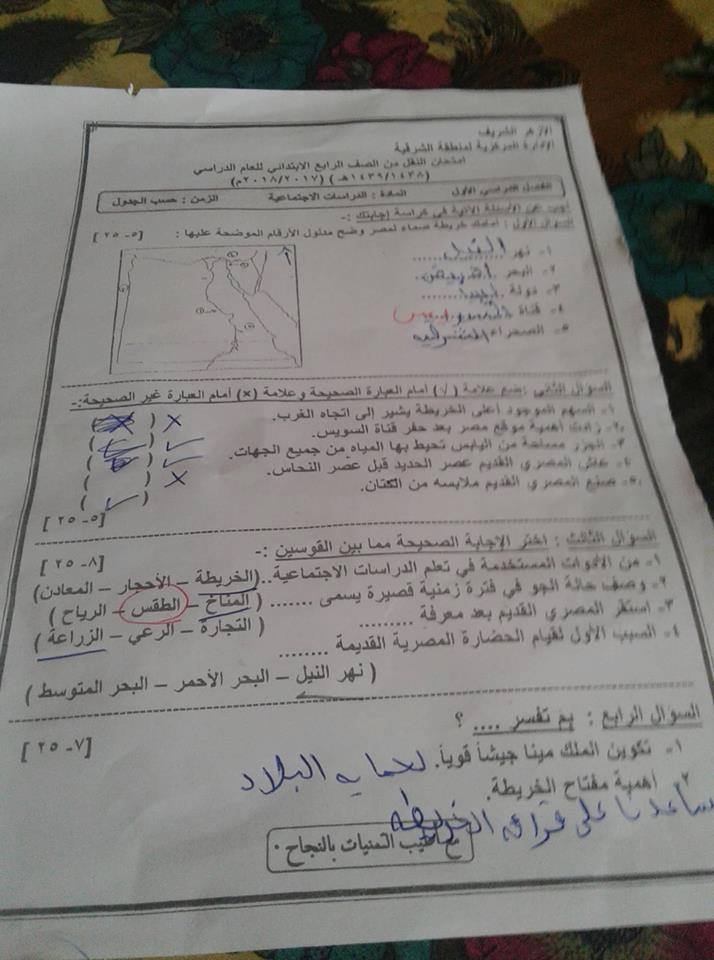 الأزهر الشريف
الإدارة المركزية لمنطقة الشرقية
امتحان النقل من الصف الرابع الابتدائي للعام الدراسي
(١٤٣٩/١٤٣٨هـ) (٢٠١٨/٢٠١٧م)
الفصل الدراسي الأول المادة : الدراسات الاجتماعية الزمن : حسب الجدول
أجب عن الأسئلة الآتية في كراسة إجابتك :-
السؤال الأول : أمامك خريطة صماء لمصر وضح مدلول الأرقام الموضحة عليها : [٥- ٢٥]
١- نهر النيل
٢- البحر
٣- دولة ليبيا
٤- قناة السويس
٥- الصحراء الشرقيه
السؤال الثاني : ضع علامة (√) أمام العبارة الصحيحة وعلامة (×) أمام العبارة غير الصحيحة:-
١- السهم الموجود أعلى الخريطة يشير إلى اتجاه الغرب. ×
٢- زادت أهمية موقع مصر بعد حفر قناة السويس. ✓
٣- الجزر مساحة من اليابس تحيط بها المياه من جميع الجهات. ✓
٤- عاش المصري القديم عصر الحديد قبل عصر النحاس. ( ) ×
٥- صنع المصري القديم ملابسه من الكتان. ( ✓ )
[٥- ٢٥]
السؤال الثالث : اختر الإجابة الصحيحة مما بين القوسين :- [٨- ٢٥]
١- من الأدوات المستخدمة في تعلم الدراسات الاجتماعية.. (الخريطة – الأحجار – المعادن)
٢- وصف حالة الجو في فترة زمنية قصيرة يسمى ....... ( المناخ – الطقس – الرياح )
٣- استقر المصري القديم بعد معرفة ......... ( التجارة – الرعي – الزراعة )
٤- السبب الأول لقيام الحضارة المصرية القديمة ........
( نهر النيل – البحر الأحمر – البحر المتوسط )
السؤال الرابع : بم تفسر .... ؟ [٧- ٢٥]
١- تكوين الملك مينا جيشاً قوياً. لحمايه البلاد
٢- أهمية مفتاح الخريطة.
ساعدنا على قراءه الخريطه
مع أطيب التمنيات بالنجاح